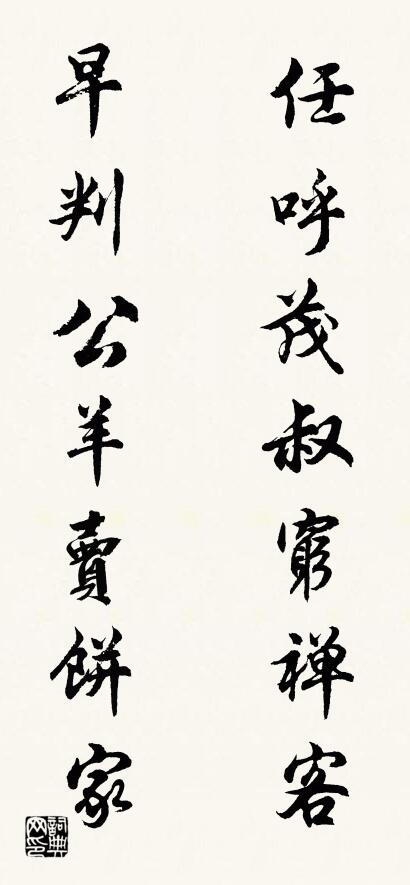 任呼茂叔窮禪客
早判公羊賣餅家
詞典网印